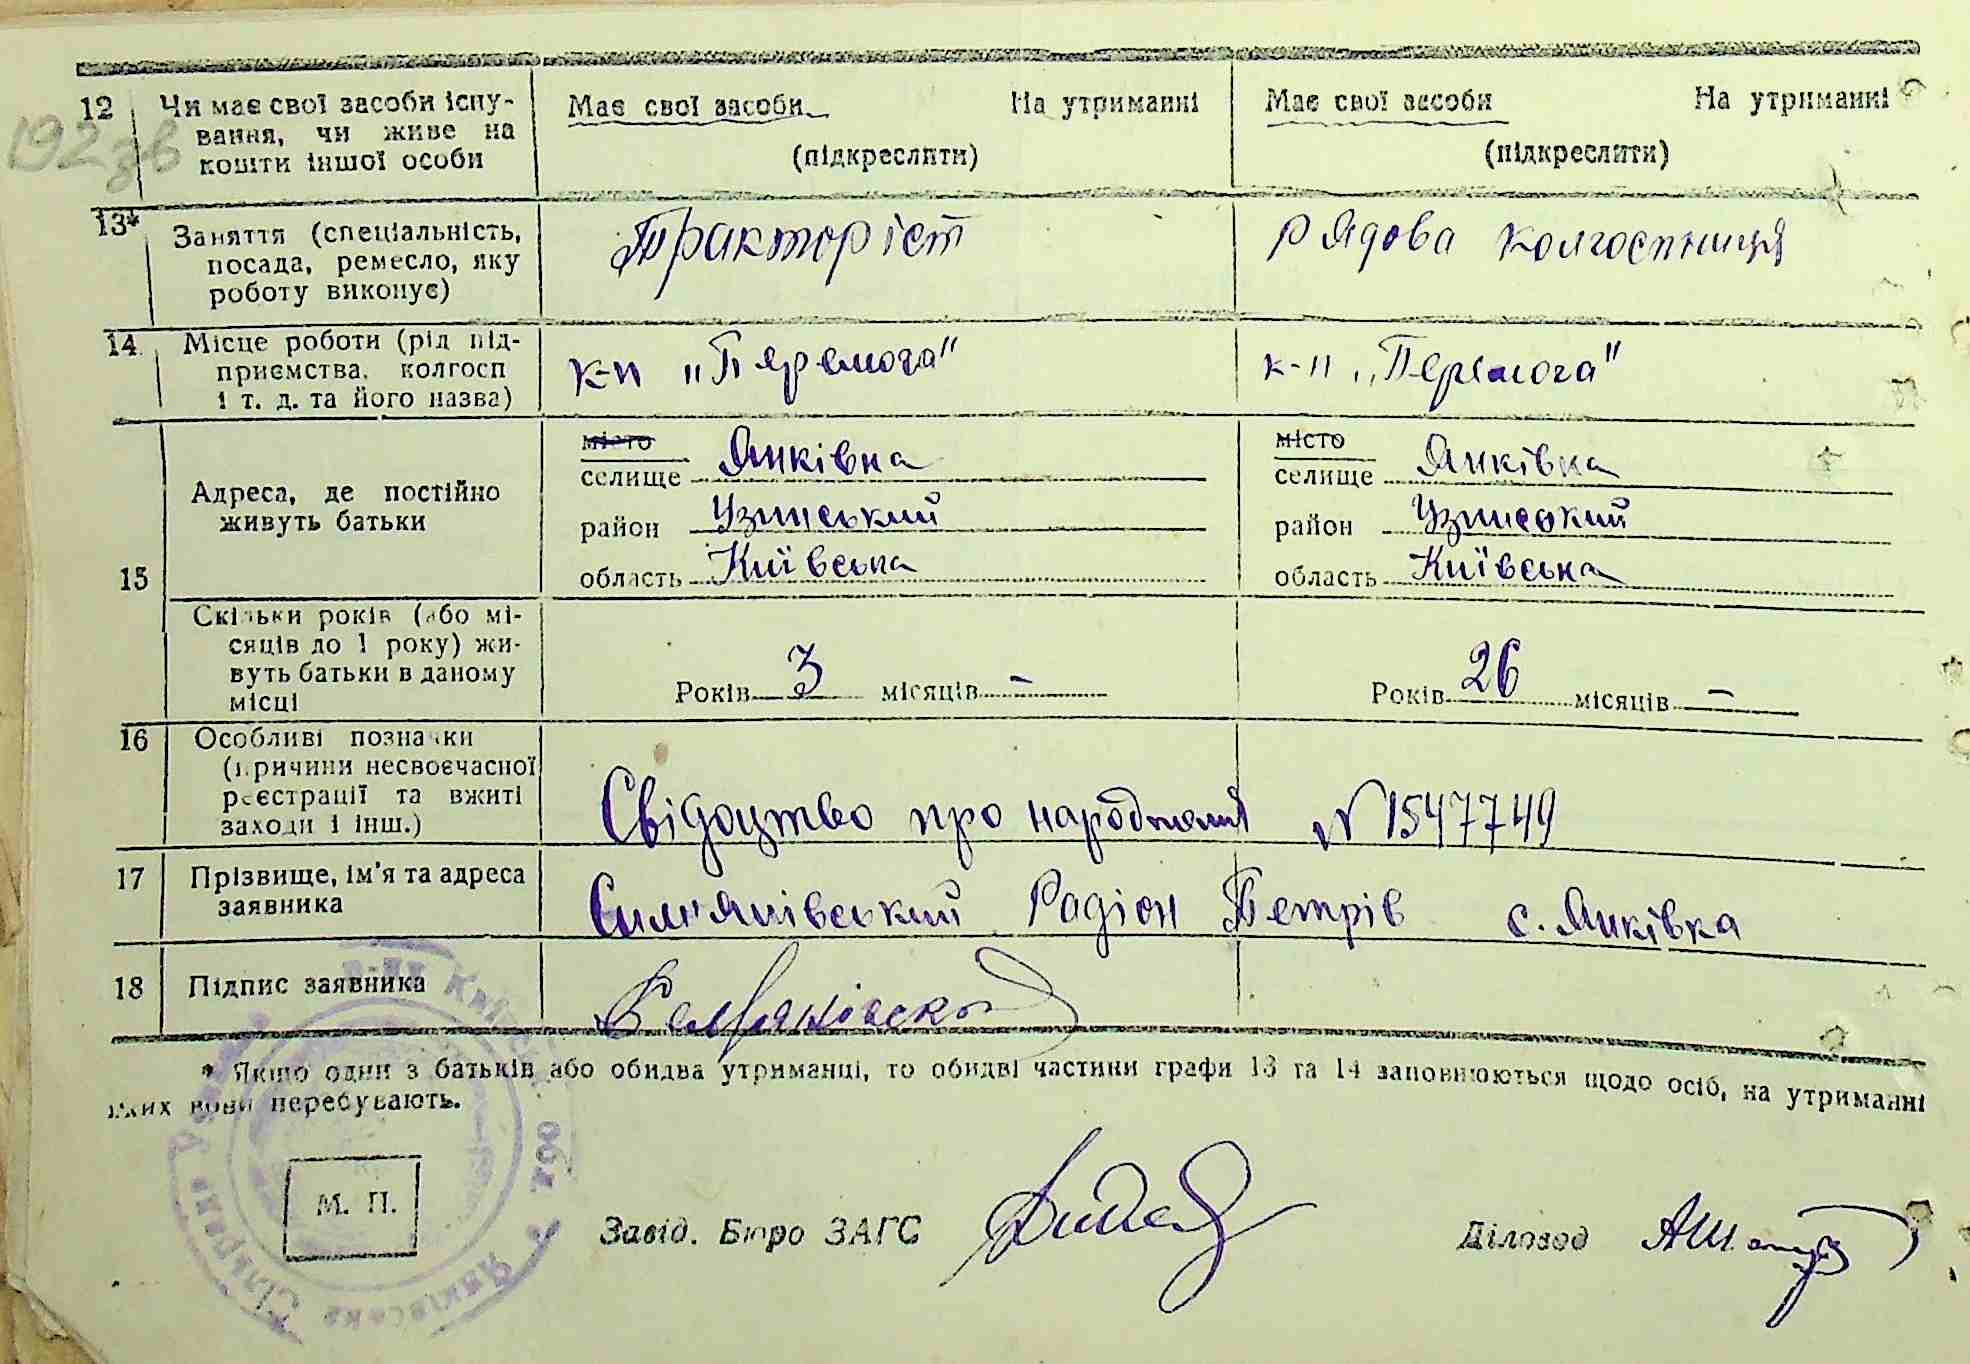 192зв
12 Чи має свої засоби існу- Має свої засоби На утриманні Має свої засоби На утриманні
вання, чи живе на (підкреслити) (підкреслити)
кошти іншої особи
13* Заняття (спеціальність, Тракторіст Рядова колгоспниця
посада, ремесло, яку
роботу виконує)
14 Місце роботи (рід під- к-п „Перемога" к-п „Перемога"
приємства, колгосп
і т. д. та його назва)
15 Адреса, де постійно
живуть батьки
місто місто
селище Янківка селище Янківка
район Узинський район Узинський
область Київська область Київська
Скільки років (або мі-
сяців до 1 року) жи-
вуть батьки в даному
місці
Років 3 місяців – Років 26 місяців –
16 Особливі позначки
(причини несвоєчасної
реєстрації та вжиті
заходи і інш.)
Свідоцтво про народження № 1547749
17 Прізвище, ім'я та адреса
заявника
Радіон Петрів с. Янківка
18 Підпис заявника
* Якщо один з батьків або обидва утриманці, то обидві частини графи 13 та 14 заповнюються щодо осіб, на утриманні
яких вони перебувають.
М. П.
Завід. Бюро ЗАГС Діловод
р-ну Київської обл.
Янківська Сільрада